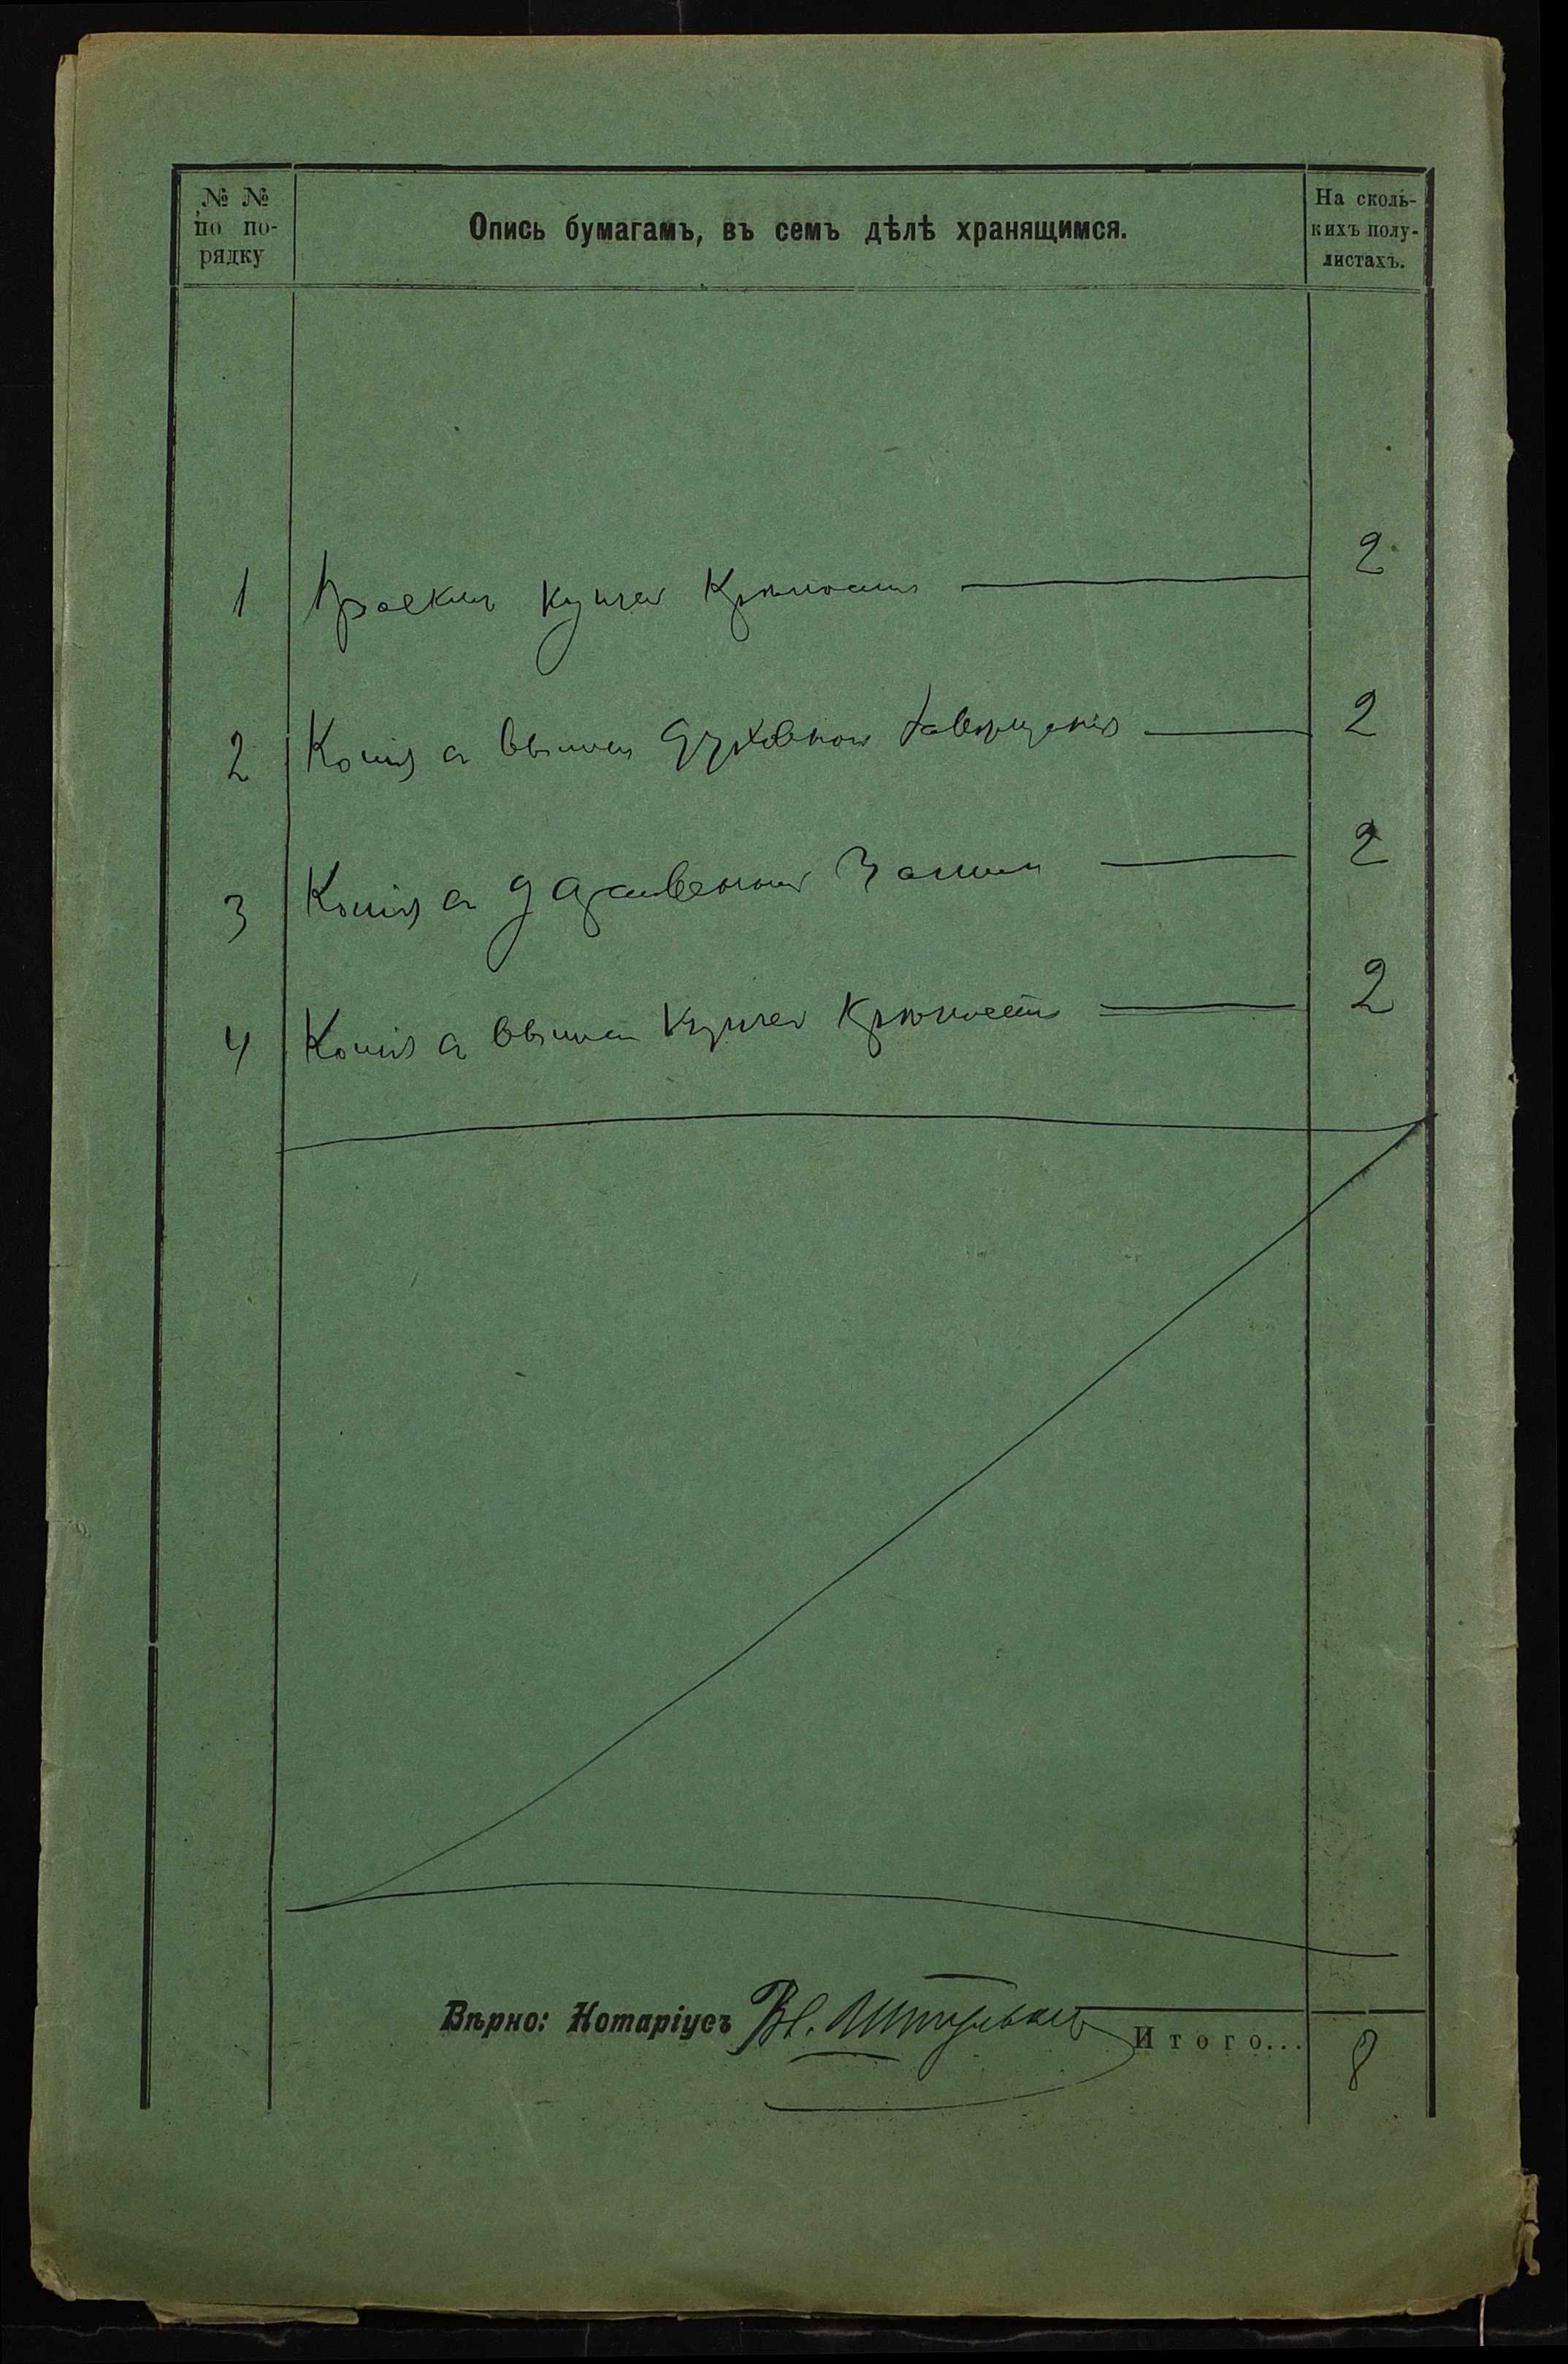 № №
по по-
рядку
Опись бумагамъ, въ семъ дѣлѣ хранящимся.
На сколь-
кихъ полу-
листахъ.
1 Проектъ купчей крѣпости 2
2 Копія съ выписи духовнаго завѣщанія 2
3 Копія съ дарственной записи 2
4 Копія съ выписи купчей крѣпости 2
Вѣрно: Нотаріусъ Вл.
Итого... 8